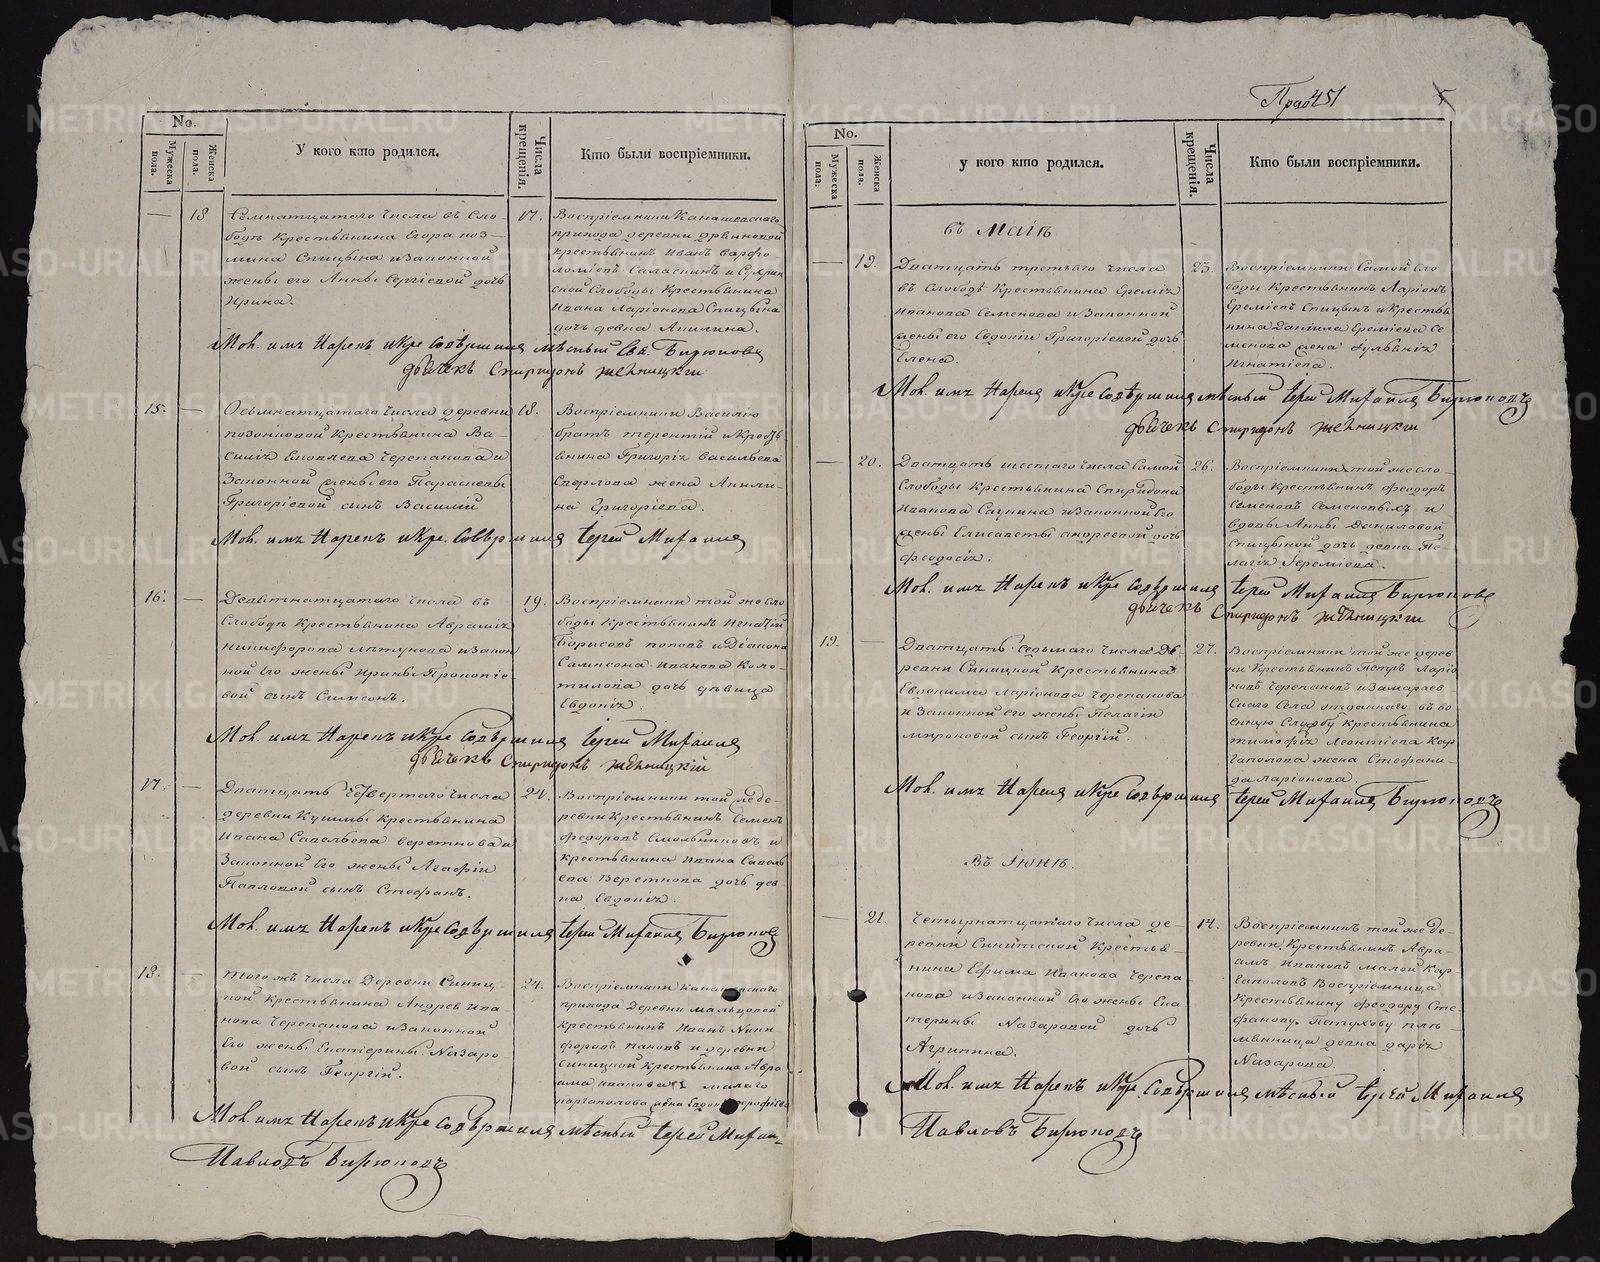 No.
Мужеска пола.
Женска пола.
У кого кто родился.
Числа крещенія.
Кто были воспріемники.
18
Семнатцатаго числа въ Сло-
бодѣ Крестьянина Егора коз-
мина Спицына и законной
жены его Анны Сергіевой дочь
Ирина.
17.
Воспріемники Канашевскаго
прихода деревни
крестьянинъ Иванъ Варфо
ломѣевъ и Сухрин
ской Слободы Крестьянина
Ивана Ларіонова Спицына
дочь девка Акилина.
Мол. имъ Нарекъ и Кре. Содѣршилъ мѣсный Свя. Бирюковъ
дьячекъ Спиридонъ
15.
Осьмнатцатаго числа деревни
крестьянина Ва-
силія Яковлева Черепанова и
Законной жены его Парасковьи
Григоріевой сынъ Василій
18.
Воспріемники Василію
братъ терентій и
Григорія васильева
жена Акили-
на Григоріева.
Мол. имъ Нарекъ и Кре. Совѣршилъ Іерей Михаилъ
16.
Девятнатцатаго числа въ
Слободѣ Крестьянина Аврамія
никифорова и закон
ной его жены Ирины Прокопіе
вой сынъ Симеонъ.
19.
Воспріемники той же сло
боды Крестьянинъ Игнатій
Борисовъ поповъ и Діакона
Сампсона Иванова Коло-
тилова дочь дѣвица
Евдокія.
Мол. имъ Нарекъ и Кре Содѣршилъ Іерей Михаилъ
дьячекъ Спиридонъ
17.
Дватцать четвертаго числа
деревни Крестьянина
Ивана Савельева веретнова и
Законной его жены Агафіи
Павловой сынъ Стефанъ.
24.
Воспріемники той же де-
ревни Крестьянинъ Семенъ
Федоровъ и
крестьянина Ивана Савель
ева Веретнова дочь дев
ка Евдокія.
Мол. имъ Нарекъ и Кре Содѣршилъ Іерей Михаилъ Бирюковъ
18.
того жъ числа Деревни Синиц-
кой Крестьянина Андрея Ива-
нова Черепанова и законной
его жены Екатерины Назаро-
вой сынъ Георгій.
24.
Воспріемники
прихода Деревни мальцовой
крестьянинъ Иванъ Ники
форовъ пановъ и деревни
синицкой Крестьянина Авра
ама иванова малаго
каргаполова жена
Мол. имъ Нарекъ и Кре Содѣршилъ мѣсный Іерей Михаи
Павловъ Бирюковъ
451
5
No.
Мужеска пола.
Женска пола.
У кого кто родился.
Числа крещенія.
Кто были воспріемники.
въ Маіѣ
19.
Дватцать третьяго числа
въ Слободѣ Крестьянина Еремія
Иванова Семенова и Законной
жены его Евдокіи Григоріевой дочь
Елена.
23.
Воспріемники Самой Сло
боды Крестьянинъ Ларіонъ
Ереміевъ Спицынъ и Кресть
нина Даніила Ереміева Се
менова жена Ульянія
Игнатіева.
Мол. имъ Нарекъ и Кре Содѣршилъ мѣсный Іерей Михаилъ Бирюковъ
дьячекъ Спиридонъ
20.
Дватцать шестаго числа Самой
Слободы Крестьянина Спиридона
Иванова Саунина и законной его
жены Елисаветы андреевой дочь
феодосія.
26.
Воспріемники той же сло-
боды Крестьянинъ феодоръ
Семеновъ Семеновыхъ и
вдовы Анны Даниловой
Спицыной дочь девка Пе-
лагія Іереміева.
Мол. имъ Нарекъ и Кре Содѣршилъ Іерей Михаилъ Бирюковъ
дьячекъ Спиридонъ
19.
Дватцать седьмаго числа де
ревни Синицкой Крестьянина
Евдокима Ларіонова Черепанова
и Законной его жены Пелагіи
мироновой сынъ Георгій.
27.
Воспріемники той же дерев
ни Крестьянинъ Петръ Ларіо
новъ Черепановъ и Замараев
скаго Села отданнаго въ во
енную Службу Крестьянина
тимофея Леонтіева Кар
гаполова жена Стефани-
да ларіонова.
Мол. имъ Нарекъ и Кре Содѣршилъ Іерей Михаилъ Бирюковъ
Въ Іюнѣ.
21.
Четырнатцатаго числа де-
ревни Синитской Крестья-
нина Ефима Иванова Черепа
нова и законной его жены Ека
терины Назаровой дочь
Агрипина.
14.
Воспріемникъ той же де
ревни Крестьянинъ Авра-
амъ Ивановъ малой Кар-
гаполовъ Воспріемница
Крестьянину феодору Сте
фанову Петухову пле-
мянница девка дарія
Назарова.
Мол. имъ Нарекъ и Кре. Содѣршилъ мѣсный Іерей Михаилъ
Павловъ Бирюковъ